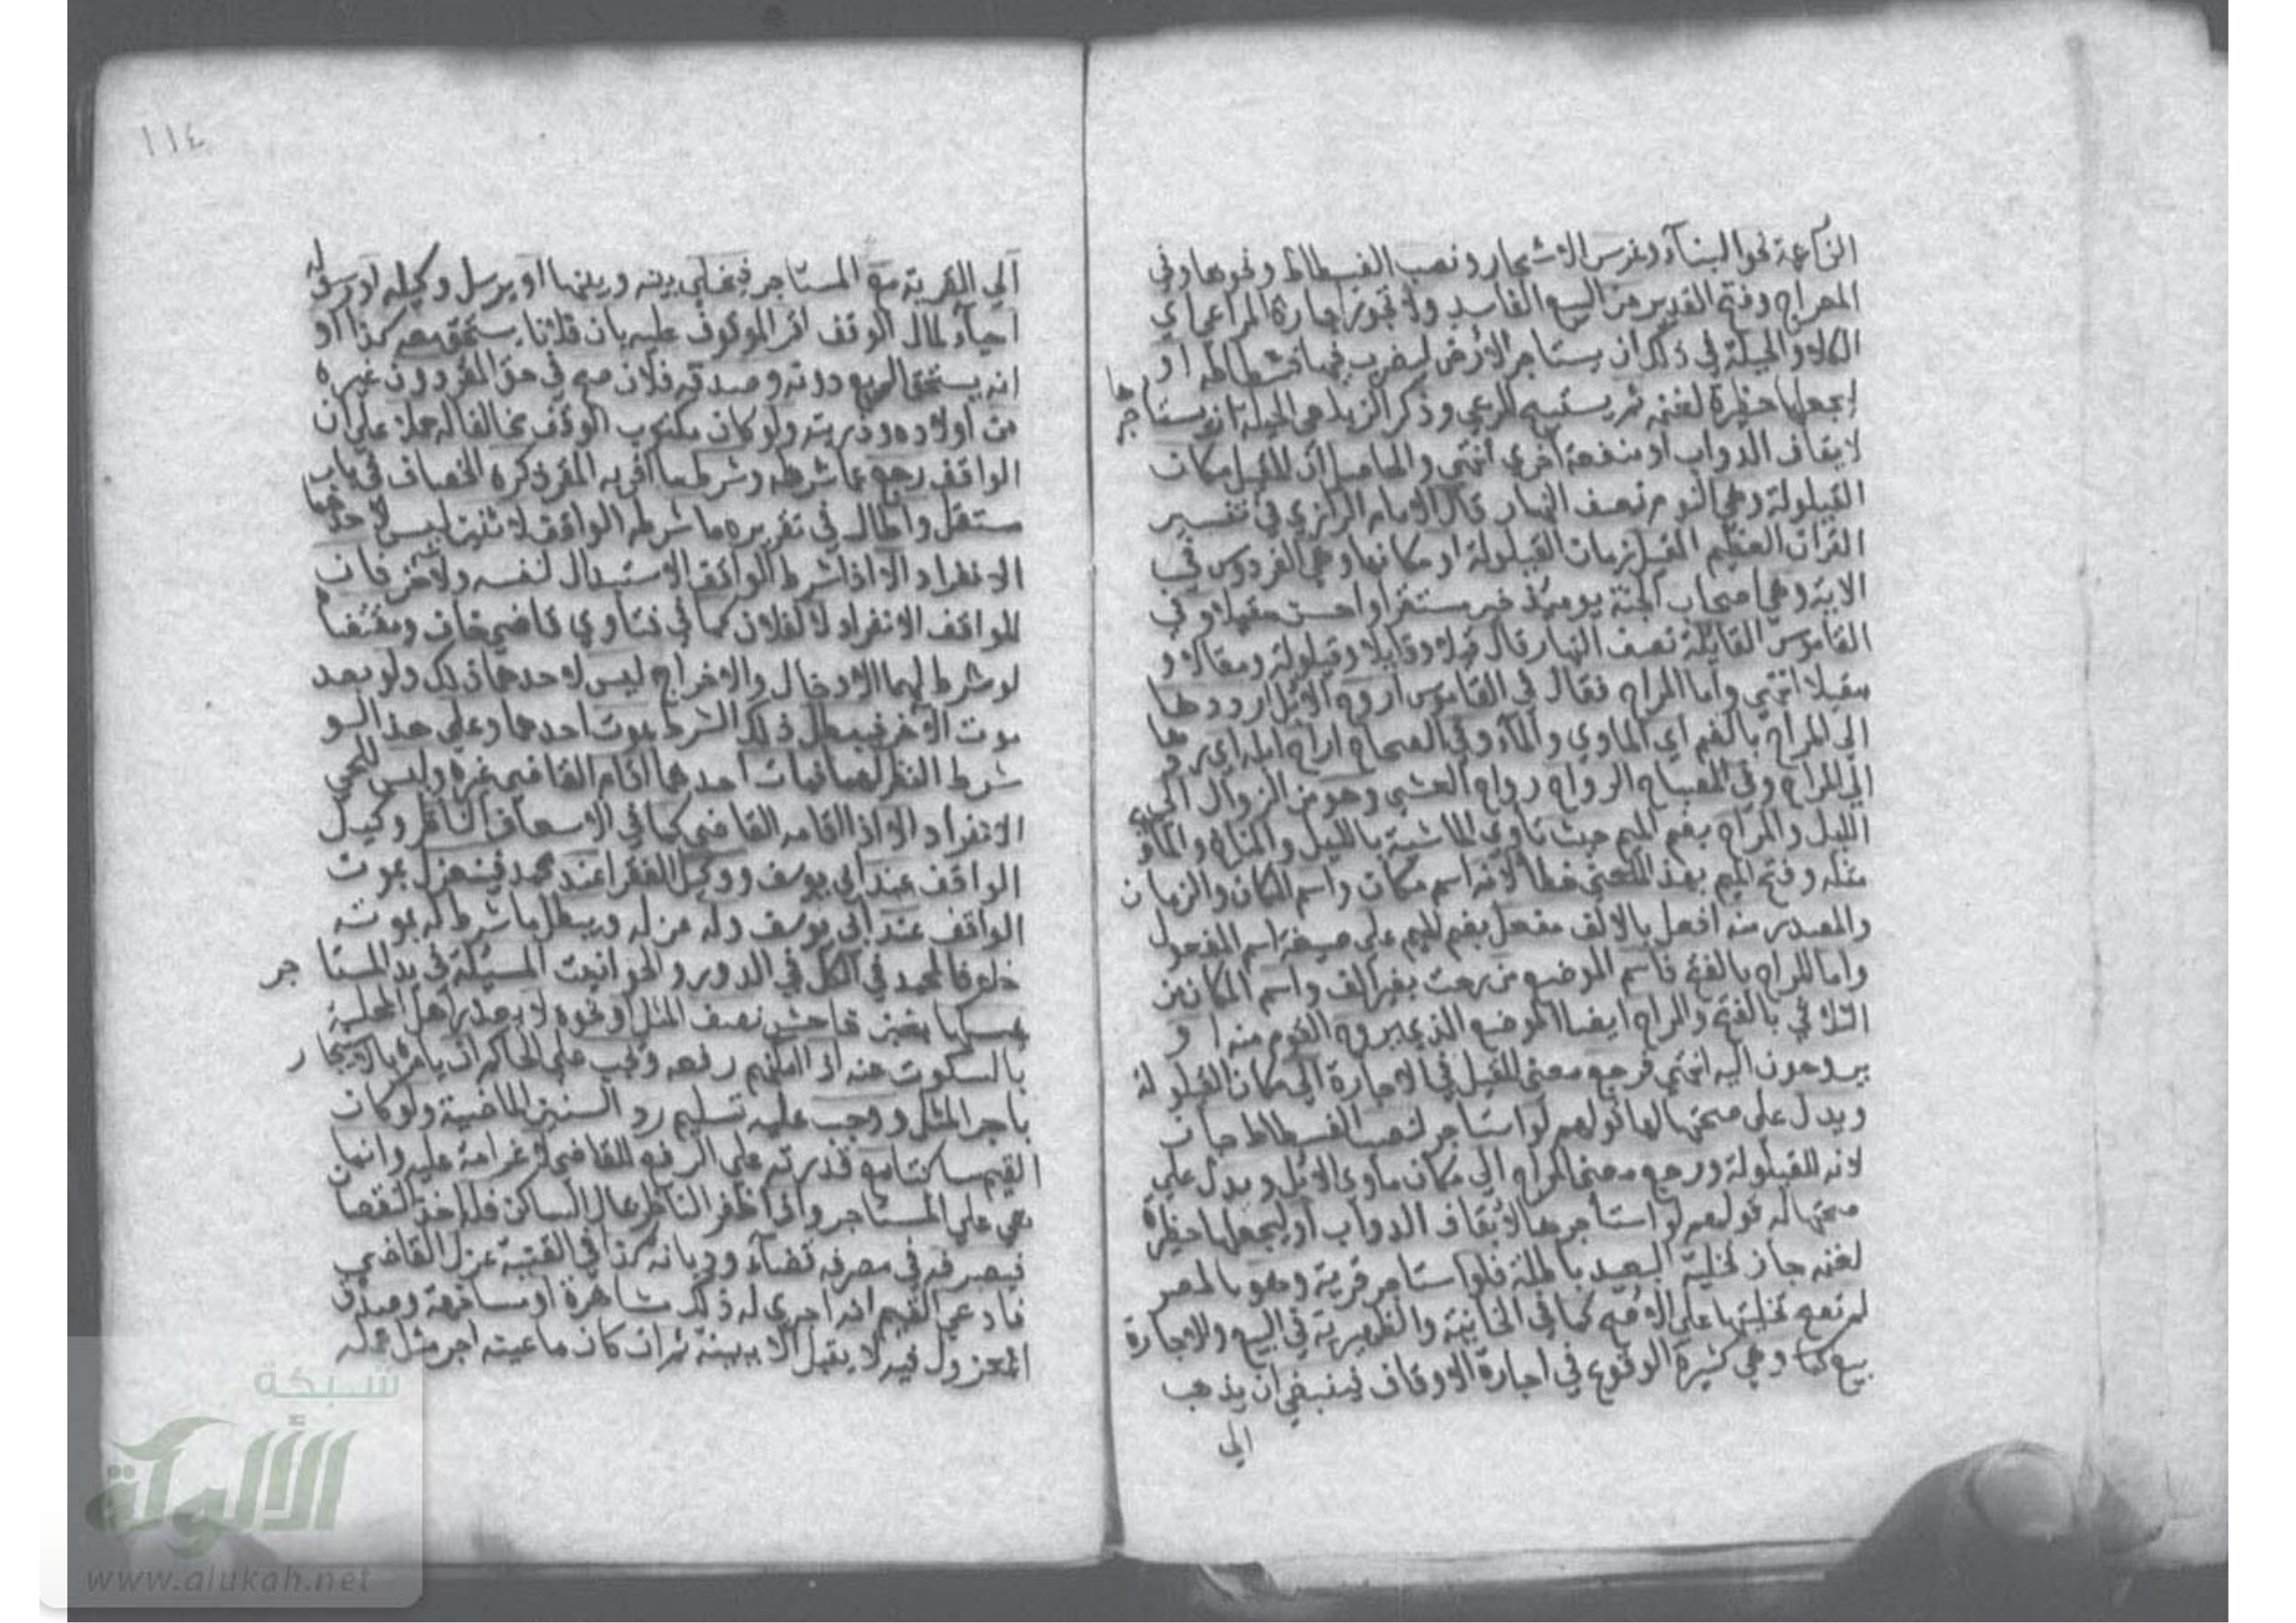 الزراعة نحو البنآء وغرس الاشجار ونصب الفسطاط ونحوها وفي
المعراج وفتح القدير من البيع الفاسد ولا تجوز اجارة المراعي اي
الكلاء والحيلة في ذلك ان يستاجر الارض ليضرب فيها فسطاطه او
ليجعلها حظيرة لغنمه ثم يستبيح المرعي وذكر الزيلعي الحيلة ان يستاجرها
لايقاف الدواب او منفعة اخري انتهي والحاصل ان المقيل مكان
القيلولة وهي النوم نصف النهار قال الامام الرازي في تفسير
القران العظيم المقيل زمان القيلولة او مكانها وهي الفردوس في
الاية وهي اصحاب الجنة يوميئذ خير مستقرا واحسن مقيلا وفي
القاموس القايلة نصف النهار قال قيلا وقايلا وقيلولة ومقالا و
مقيلا انتهي واما المراح فقال في القاموس اروح الابل اي ردها
الي المراح بالضم اي الماوي والمآء وفي الصحاح اراح ابله اي ردها
الي المراح وفي المصباح الرواح رواح العشي وهو من الزوال الي
الليل والمراح بضم الميم حيث تاوي الماشية بالليل والمناخ والماوي
مثله وفتح الميم بهذا المعني خطا لانه اسم مكان واسم المكان والزمان
والمصدر من افعل بالالف مفعل بضم الميم علي صيغة اسم المفعول
واما المراح بالفتح فاسم الموضع من راحت بغير الف واسم المكان من
الثلاثي بالفتح والمراح ايضا الموضع الذي يروح القوم منه او
يروحون اليه انتهي فرجع معني المقيل في الاجارة الي مكان القيلولة
ويدل علي صحتها لها قولهم لو استاجر لنصب الفسطاط جاز
لانه للقيلولة ورجع معني المراح الي مكان ماوي الابل ويدل علي
صحتها له قولهم لو استاجرها لايقاف الدواب او ليجعلها حظيرة
لغنمه جاز تخلية البعيد باطلة فلو استاجر قرية وهو بالمصر
لم تصح تخليتها علي الاصح كما في الخانية والظهيرية في البيع والاجارة
وهي كثيرة الوقوع في اجارة الاوقاف فينبغي ان يذهب
الي
١١٤
الي القرية مع المستاجر فيخلي بينه وبينها او يرسل وكيله او رسوله
احيآء لمال الوقف اقر الموقوف عليه بان فلانا يستحق معه كذا او
انه يستحق الريع دونه وصدقه فلان صح في حق المقر دون غيره
من اولاده وذريته ولو كان مكتوب الوقف بخالفا له حملا علي ان
الواقف رجع عما شرطه وشرط ما اقر به المقر ذكره الخصاف في باب
مستقل واطال في تقريره ما شرطه الواقف لاثنين ليس لاحدهما
الانفراد الا اذا شرط الواقف الاستبدال لنفسه ولاخر فان
للواقف الانفراد لا لفلان كما في فتاوي قاضيخان ومقتضا
لو شرط لهما الادخال والاخراج ليس لاحدهما ذلك ولو بعد
موت الاخر فيبطل ذلك الشرط بموت احدهما وعلي هذا لو
شرط النظر لهما فمات احدهما اقام القاضي غيره وليس للحي
الانفراد الا اذا اقامه القاضي كما في الاسعاف الناظر وكيل
الواقف عند ابي يوسف ووكيل الفقرا عند محمد فينعزل بموت
الواقف عند ابي يوسف وله عزله ويبطل ما شرط له بموته
خلافا لمحمد في الكل في الدور والحوانيت المسبلة في يد المستاجر
يمسكها بغبن فاحش نصف المثل او نحوه لا يعذر اهل المحلة
بالسكوت عنه اذا امكنهم رفعه ويجب علي الحاكم ان يامره بالايجار
باجر المثل ووجب عليه تسليم رد السنين الماضية ولو كان
القيم ساكتا مع قدرته علي الرفع للقاضي لا غرامة عليه وانما
هي علي المستاجر واذا ظفر الناظر بمال الساكن فله اخذ النقصان
فيصرفه في مصرفه قضآء وديانة كذا في القنية عزل القاضي
فادعي القيم انه اجري له ذلك مشاهرة او مسانهة وصدقه
المعزول فيه لا يقبل الا ببينة ثم ان كان ما عينه اجر مثل عمله
شبكة
الألوكة
www.alukah.net